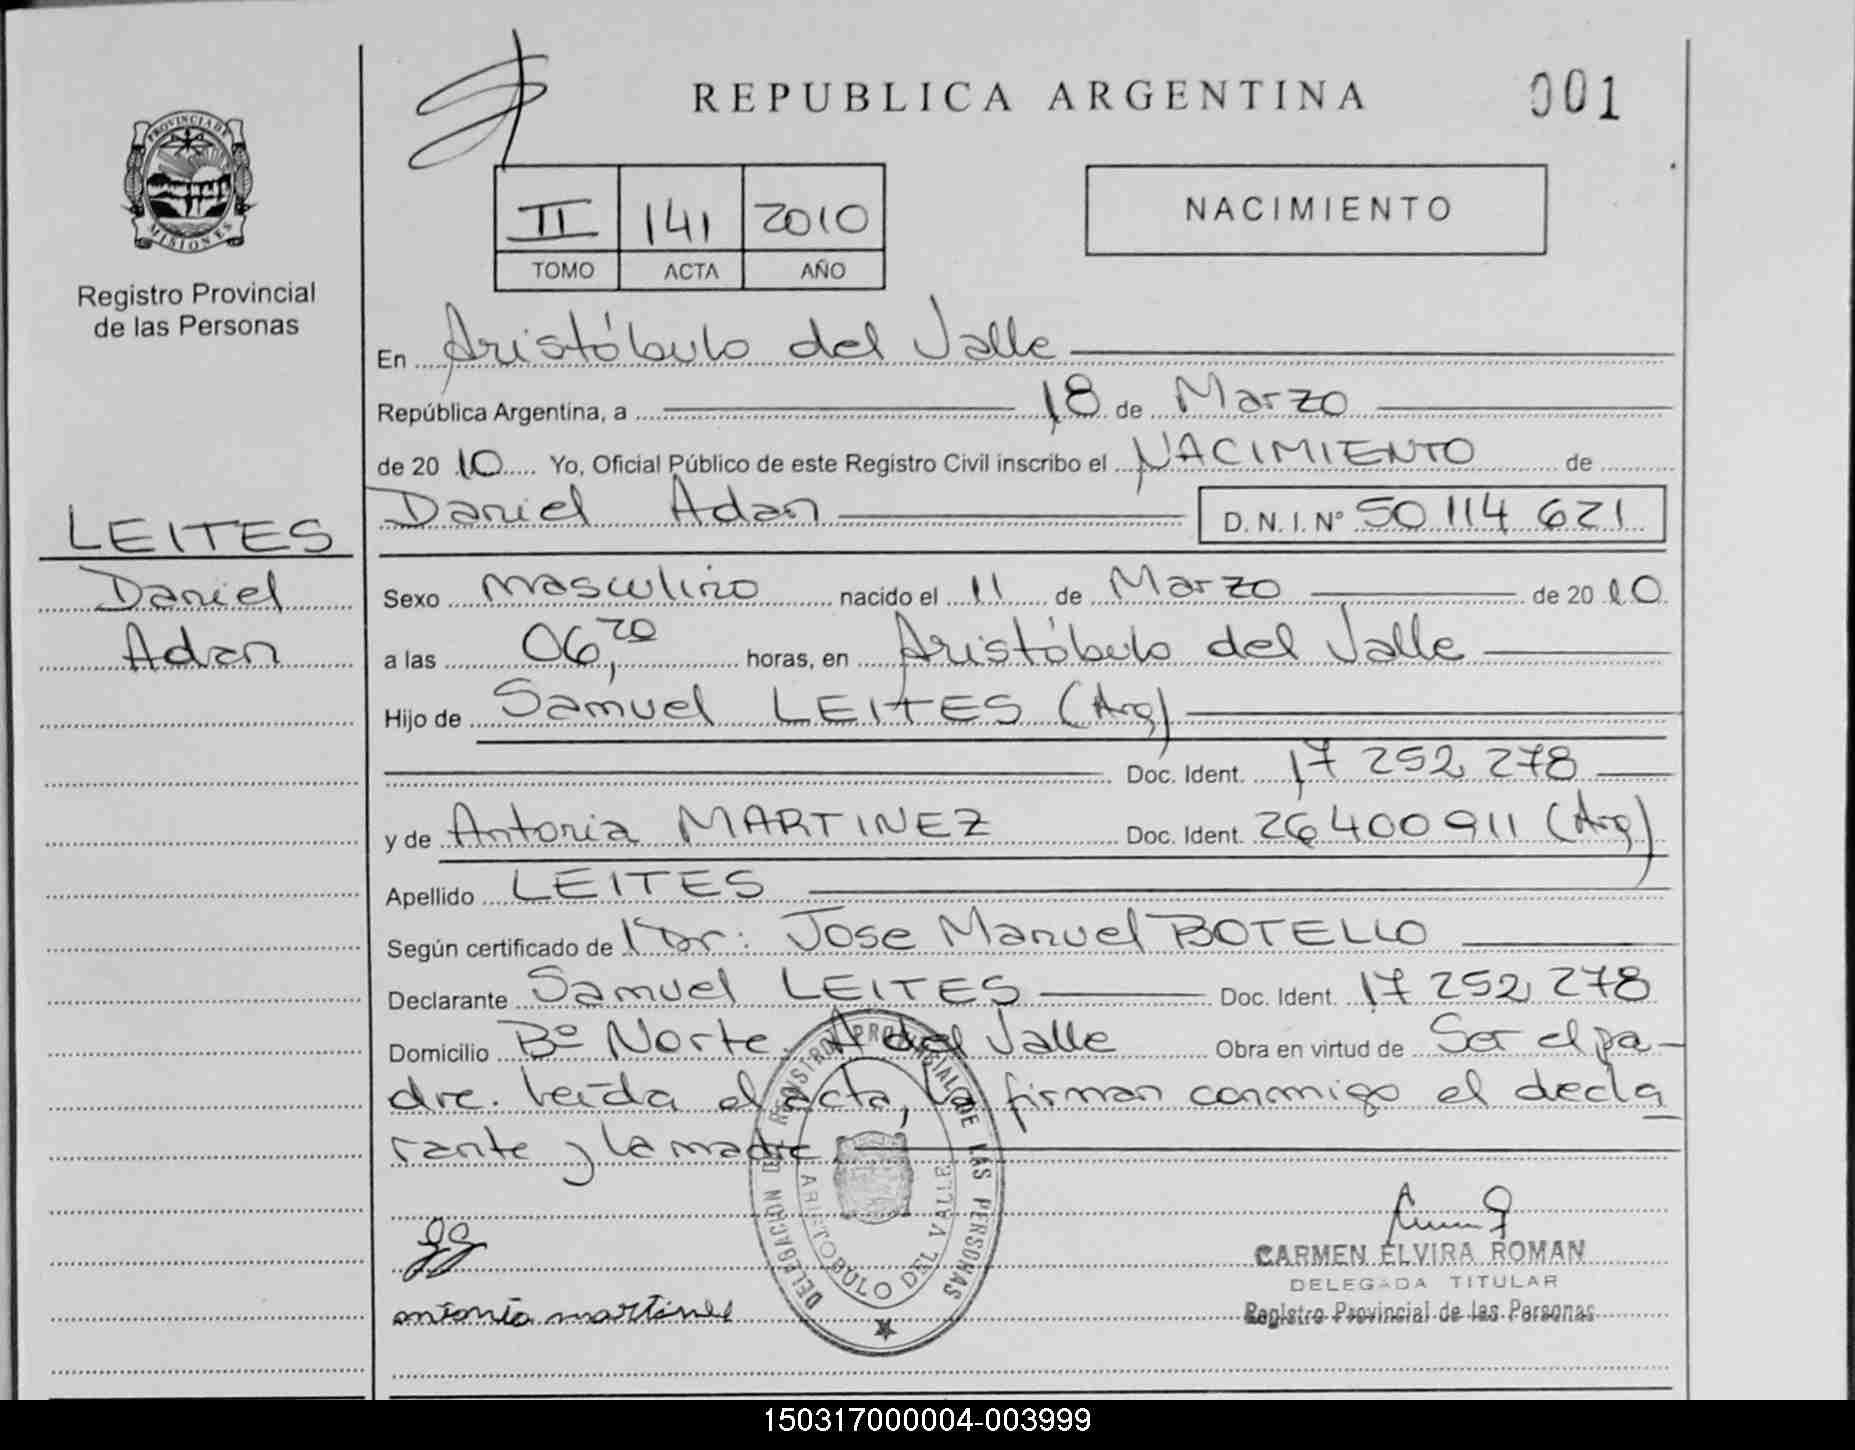 REPUBLICA ARGENTINA
001
PROVINCIA DE
MISIONES
Registro Provincial
de las Personas
II 141 2010
TOMO ACTA AÑO
NACIMIENTO
En Aristóbulo del Valle
República Argentina, a 18 de Marzo
de 20 10 Yo, Oficial Público de este Registro Civil inscribo el NACIMIENTO de
Daniel Adan D.N.I. Nº 50 114 621
LEITES
Daniel
Adan
Sexo masculino nacido el 11 de Marzo de 20 10
a las 06,20 horas, en Aristóbulo del Valle
Hijo de Samuel LEITES (Arg)
Doc. Ident. 17 252 278
y de Antonia MARTINEZ Doc. Ident. 26 400 911 (Arg)
Apellido LEITES
Según certificado de Dr: Jose Manuel BOTELLO
Declarante Samuel LEITES Doc. Ident. 17 252 278
Domicilio Bº Norte A del Valle Obra en virtud de Ser el pa-
dre. Leída el acta, la firman conmigo el decla
rante y la madre.
DELEGACION DEL REGISTRO PROVINCIAL DE LAS PERSONAS
ARISTOBULO DEL VALLE
antonia martines
CARMEN ELVIRA ROMAN
DELEGADA TITULAR
Registro Provincial de las Personas
150317000004-003999